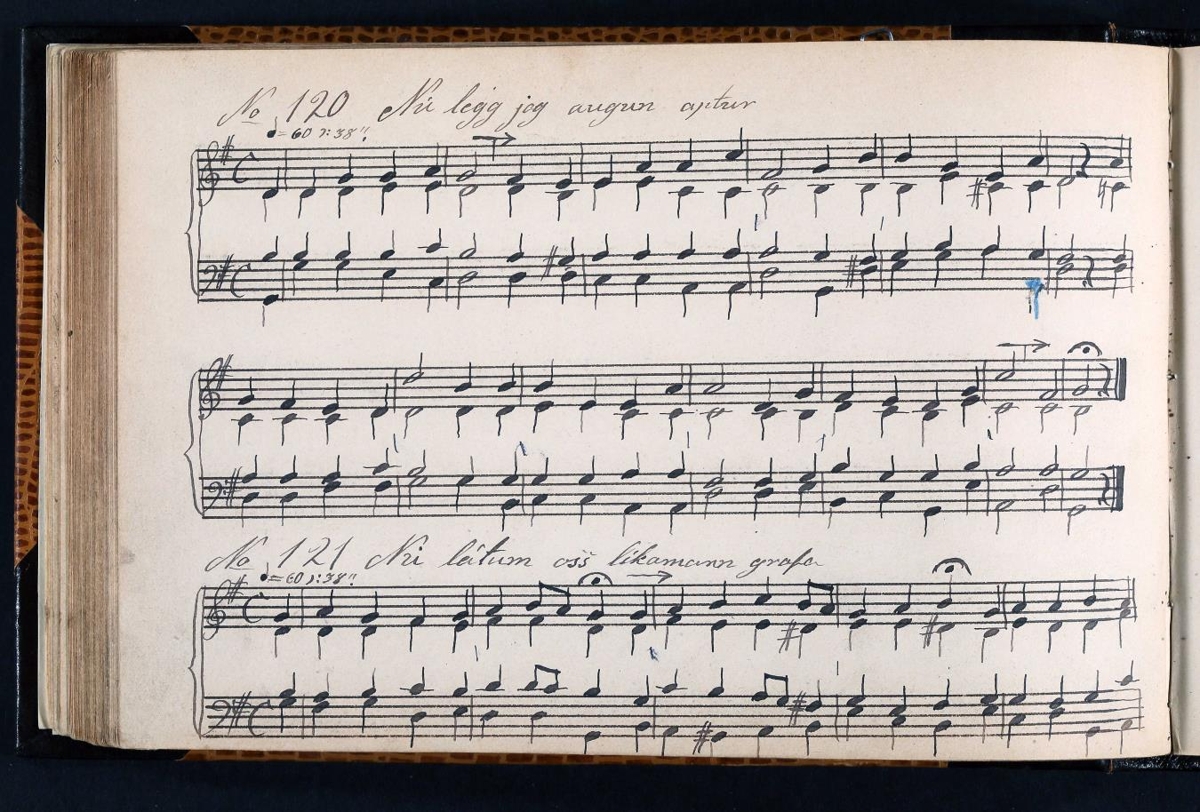 No 120 Nú legg jeg augun aptur
♩=60 ɔ: 38"
No 121 Nú látum oss líkamann grafa
♩=60 ɔ: 38"